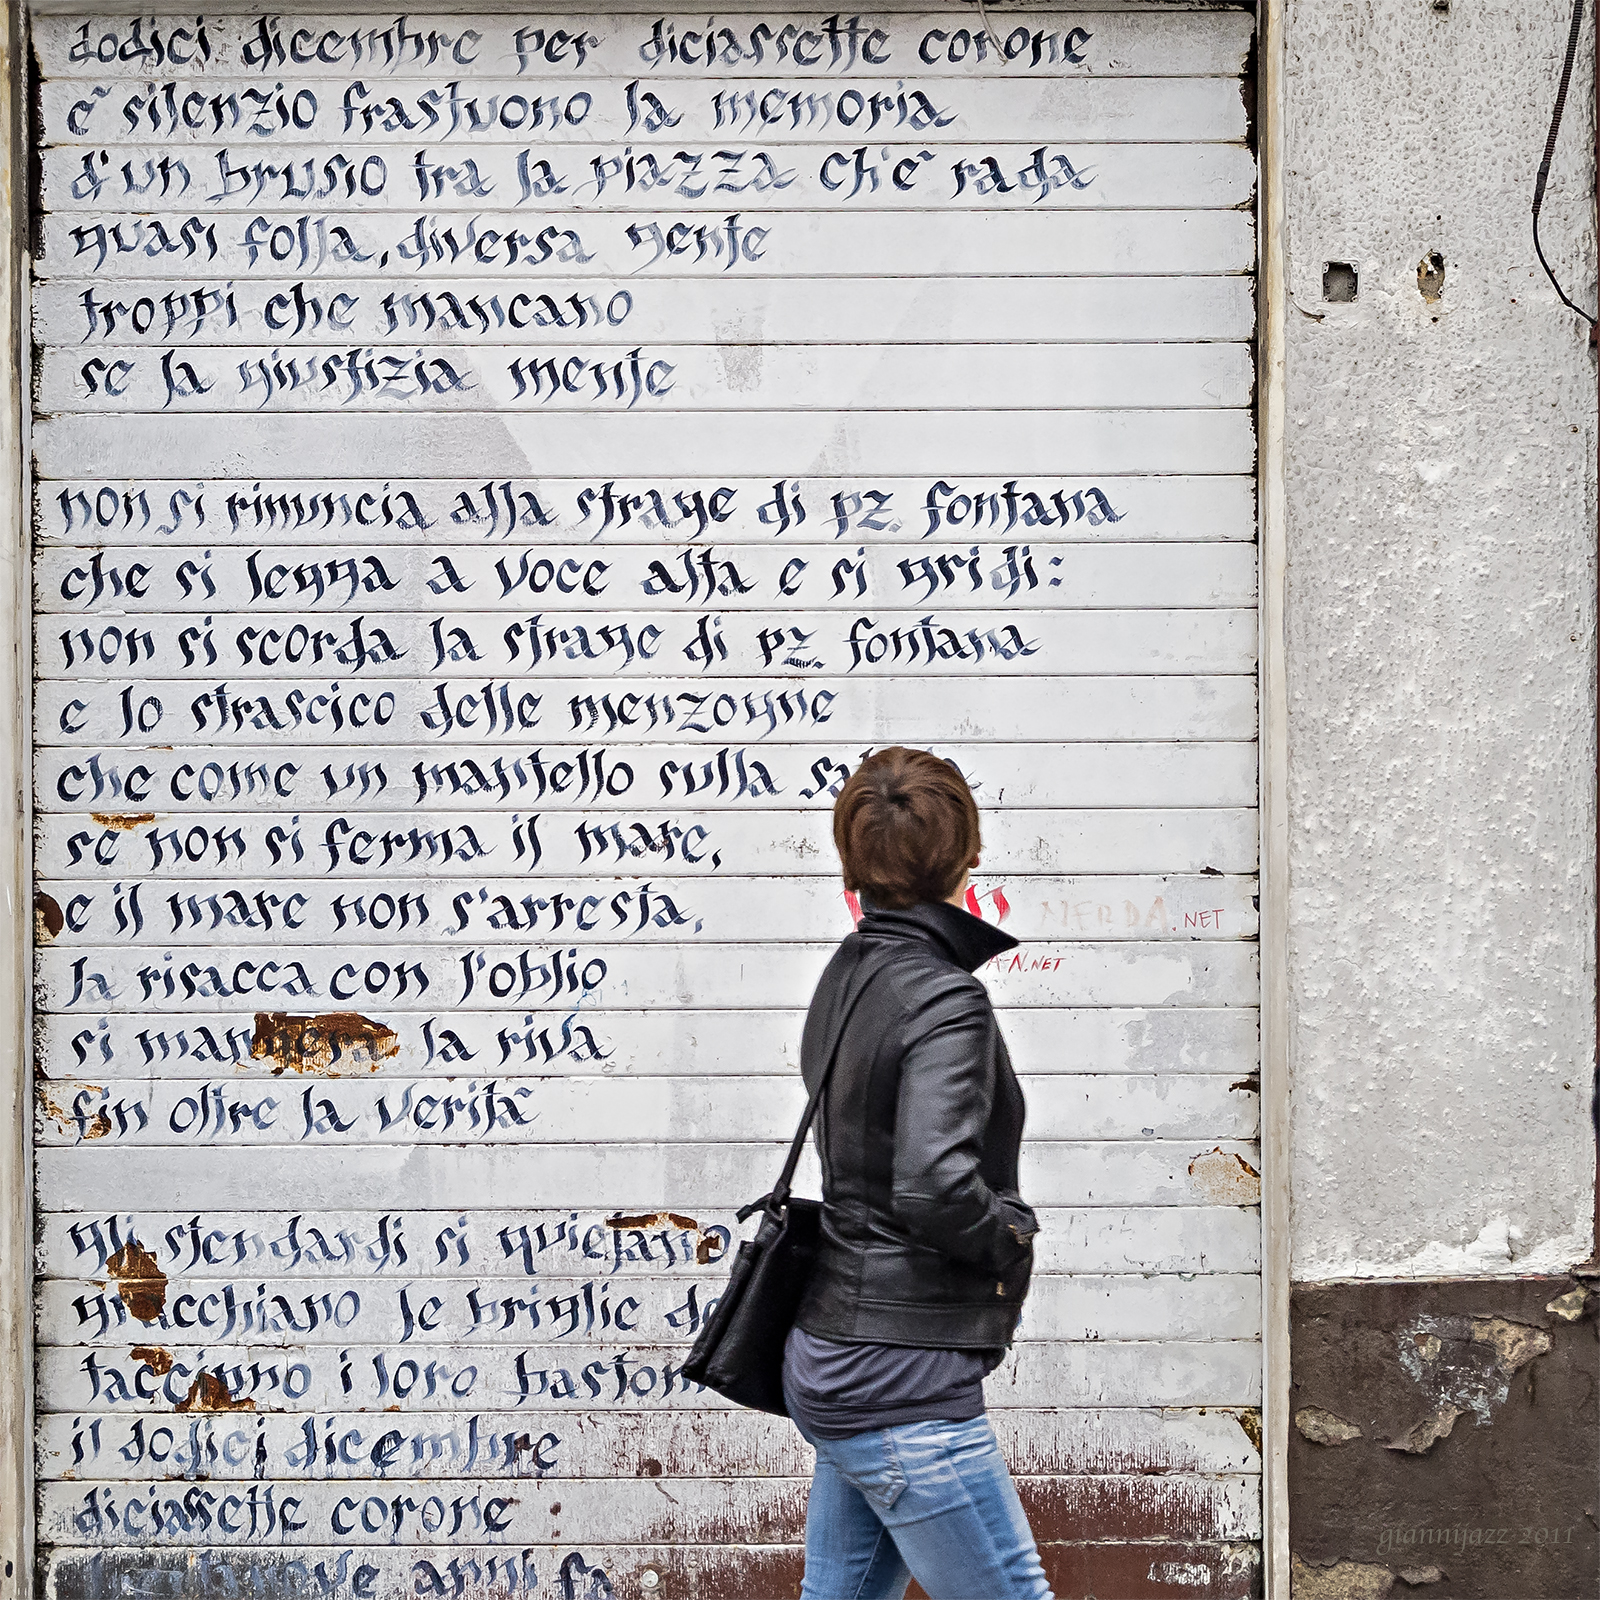 dodici dicembre per diciassette corone
è silenzio frastuono la memoria
d'un brusio tra la piazza ch'è rada
quasi folla, diversa gente
troppi che mancano
se la giustizia mente
non si rinuncia alla strage di pz. fontana
che si legga a voce alta e si gridi:
non si scorda la strage di pz. fontana
e lo strascico delle menzogne
che come un mantello sulla
se non si ferma il mare,
e il mare non s'arresta,
MERDA.NET
la risacca con l'oblio
A-N.NET
si mangerà la riva
fin oltre la verità
gli stendardi si quietano
gracchiano le briglie
tacciono i loro
il dodici dicembre
diciassette corone
anni fa
giannijazz 2011